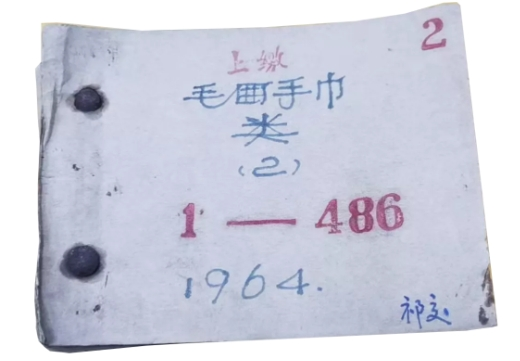 2
上缴
毛画手巾
类
(2)
1—486
1964.
祁交